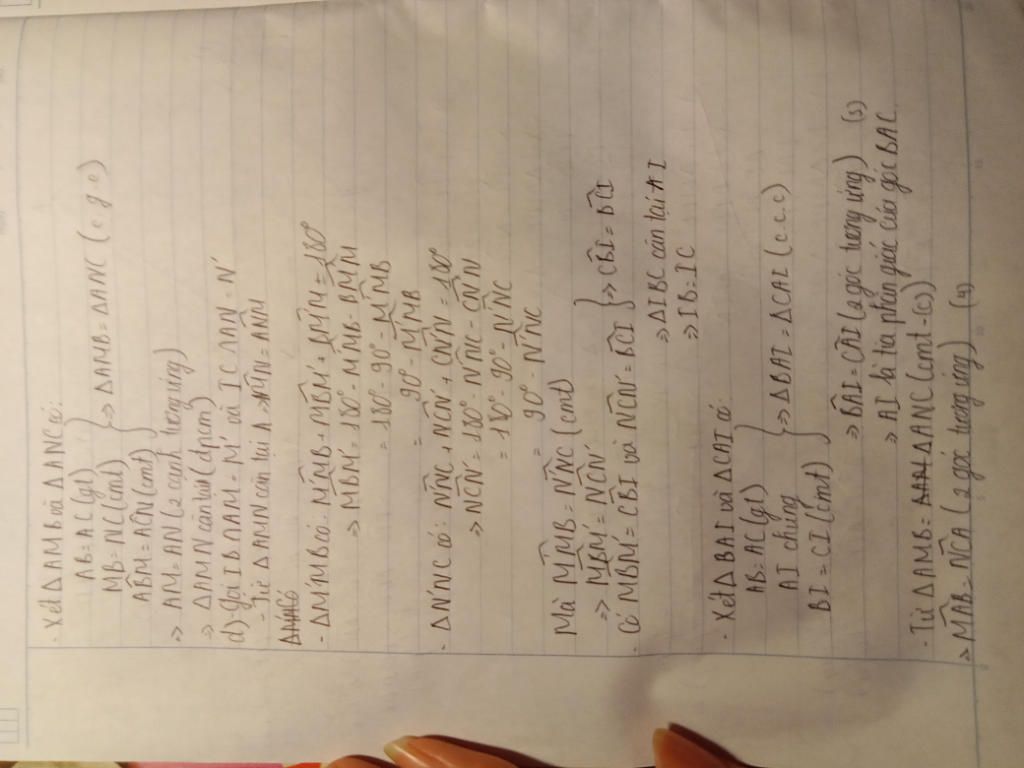 - Xét ΔAMB và ΔANC có:
AB = AC (gt)
MB = NC (cmt)
ABM̂ = ACN̂ (cmt)
} => ΔAMB = ΔANC (c.g.c)
=> AM = AN (2 cạnh tương ứng)
=> ΔAMN cân tại (đpcm)
d) - Gọi IB ∩ AM = M' và IC ∩ AN = N'
- Từ ΔAMN cân tại A => AMN̂ = ANM̂
- ΔM'MB có: M'MB̂ + MBM'̂ + MM'B̂ = 180°
=> MBM'̂ = 180° - M'MB̂ - BM'M̂
= 180° - 90° - M'MB̂
= 90° - M'MB̂
- ΔN'NC có: N'NĈ + NCN'̂ + CN'N̂ = 180°
=> NCN'̂ = 180° - N'NĈ - CN'N̂
= 180° - 90° - N'NĈ
= 90° - N'NĈ
Mà M'MB̂ = N'NĈ (cmt)
=> MBM'̂ = NCN'̂
Có MBM'̂ = CBÎ và NCN'̂ = BCÎ } => CBÎ = BCÎ
=> ΔIBC cân tại I
=> IB = IC
- Xét ΔBAI và ΔCAI có:
AB = AC (gt)
AI chung
BI = CI (cmt)
} => ΔBAI = ΔCAI (c.c.c)
=> BAÎ = CAÎ (2 góc tương ứng)
=> AI là tia phân giác của góc BAC
- Từ ΔAMB = ΔANC (cmt-c)
=> MAB̂ = NCÂ (2 góc tương ứng)